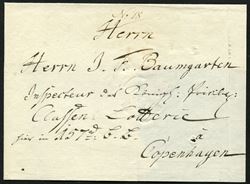 No. 18.
Herrn
Herrn J. F. Baumgarten
Inspecteur des Königl: Privile:
Classen Lotterie
à
Copenhagen